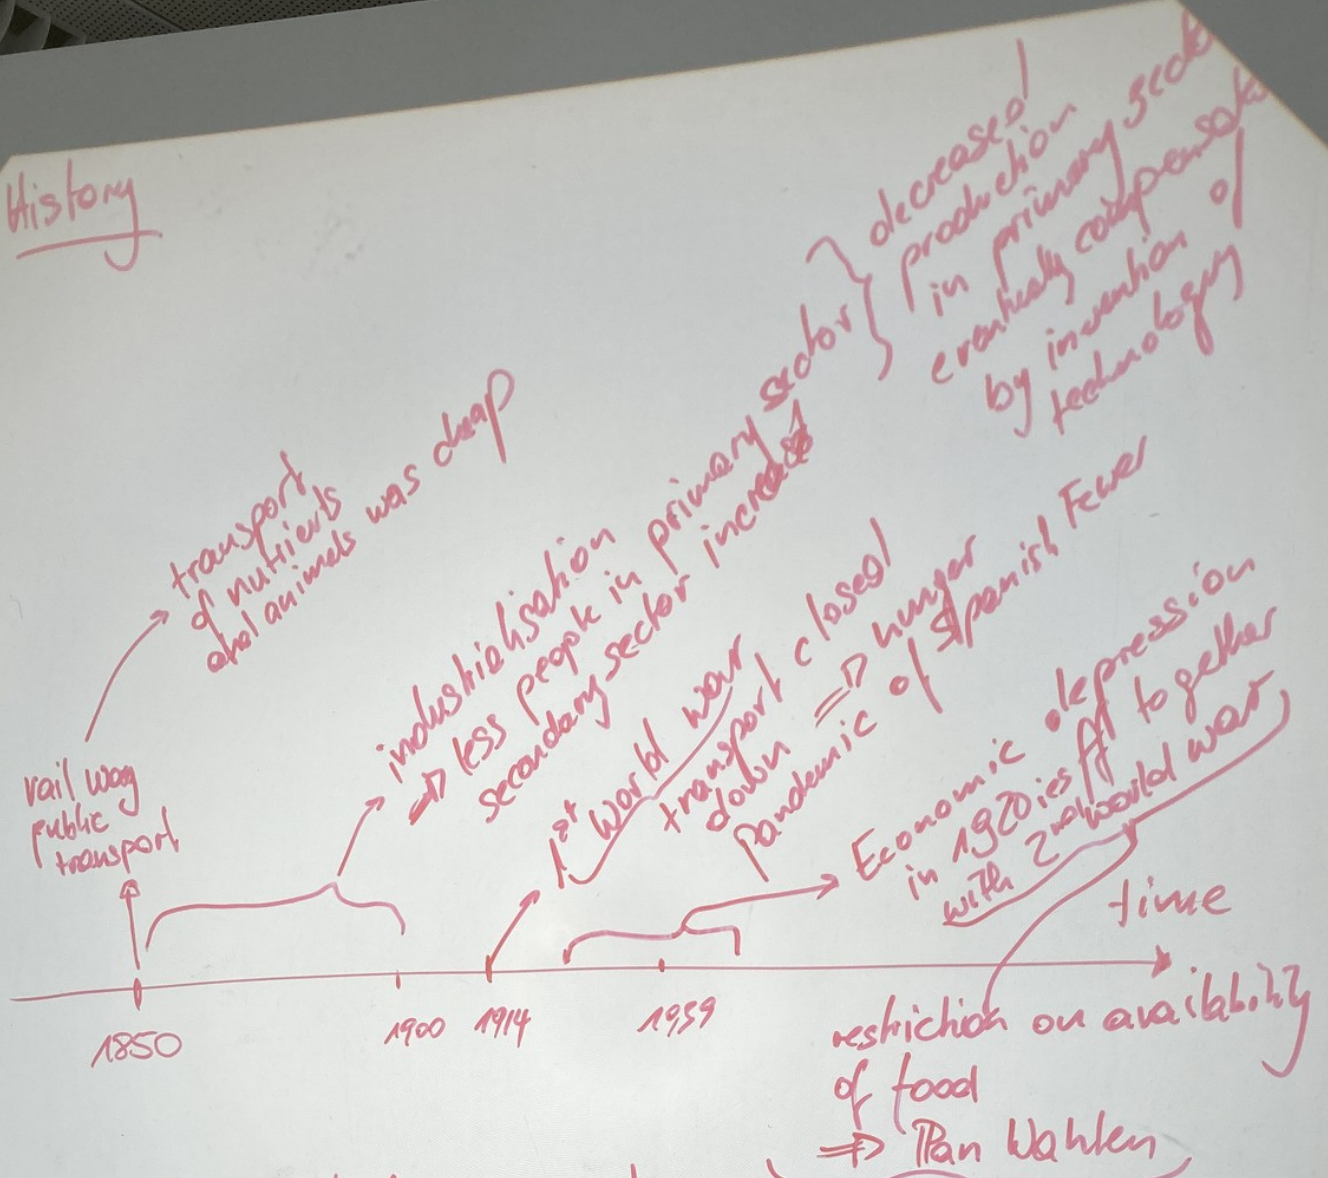 History
rail way
public
transport
transport
of nutrients
and animals was cheap
industrialisation
=> less people in primary sector
secondary sector increased
decreased
production
in primary sector
eventually compensate
by invention of
technology
1st world war
transport closed
down => hunger
pandemic of Spanish Fewer
Economic depression
in 1920ies together
with 2nd world war
time
1850
1900
1914
1939
restriction on availability
of food
=> Plan Wahlen